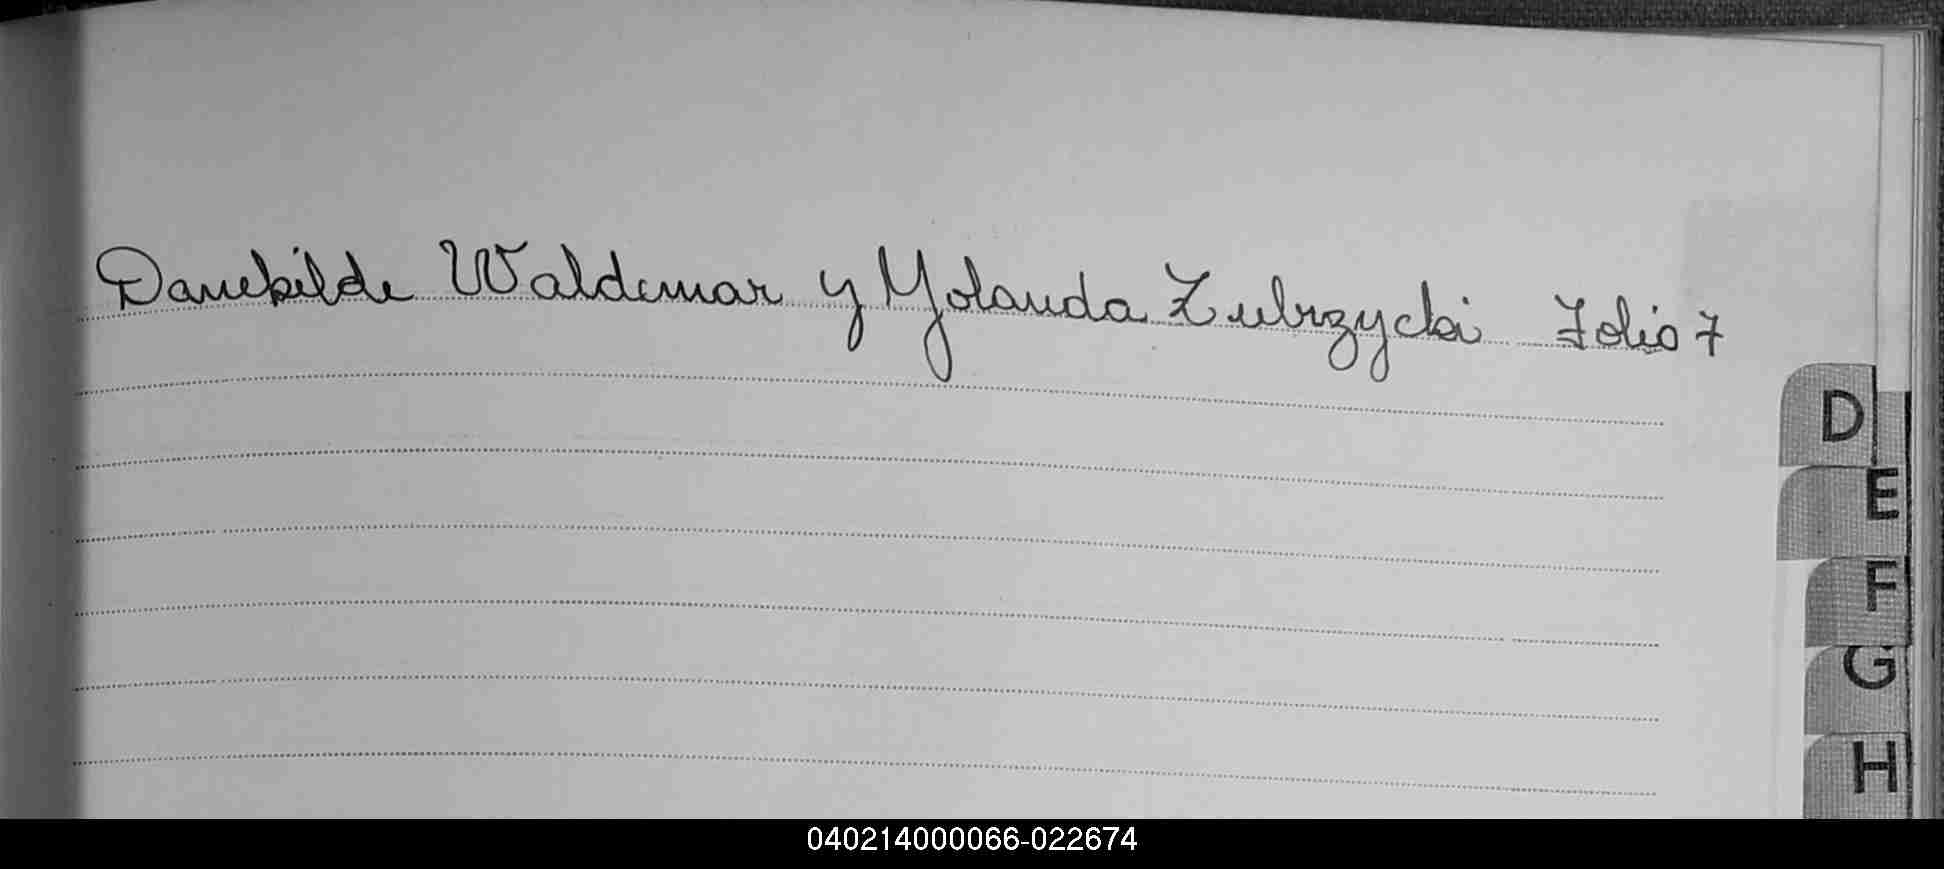 Danekilde Waldemar y Yolanda Zubrzycki Folio 7
D
E
F
G
H
040214000066-022674